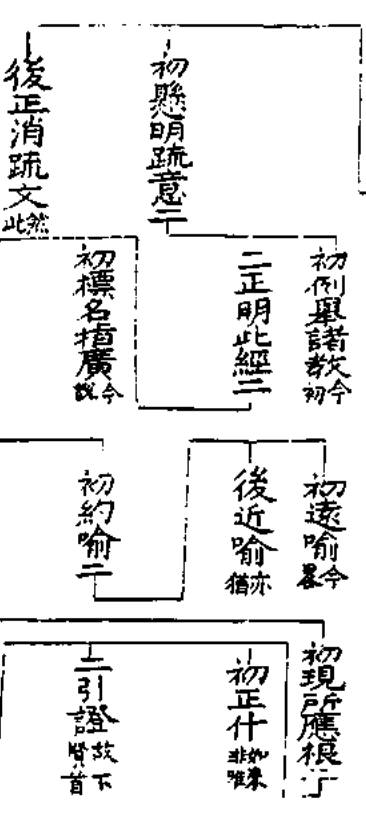 初懸明疏意二
後正消疏文然此
初例舉諸教今初
二正明此經二
初標名指廣今說
初遠喻今畧
後近喻亦猶
初約喻二
初現所應根
初正什如來非唯
二引證故下賢首